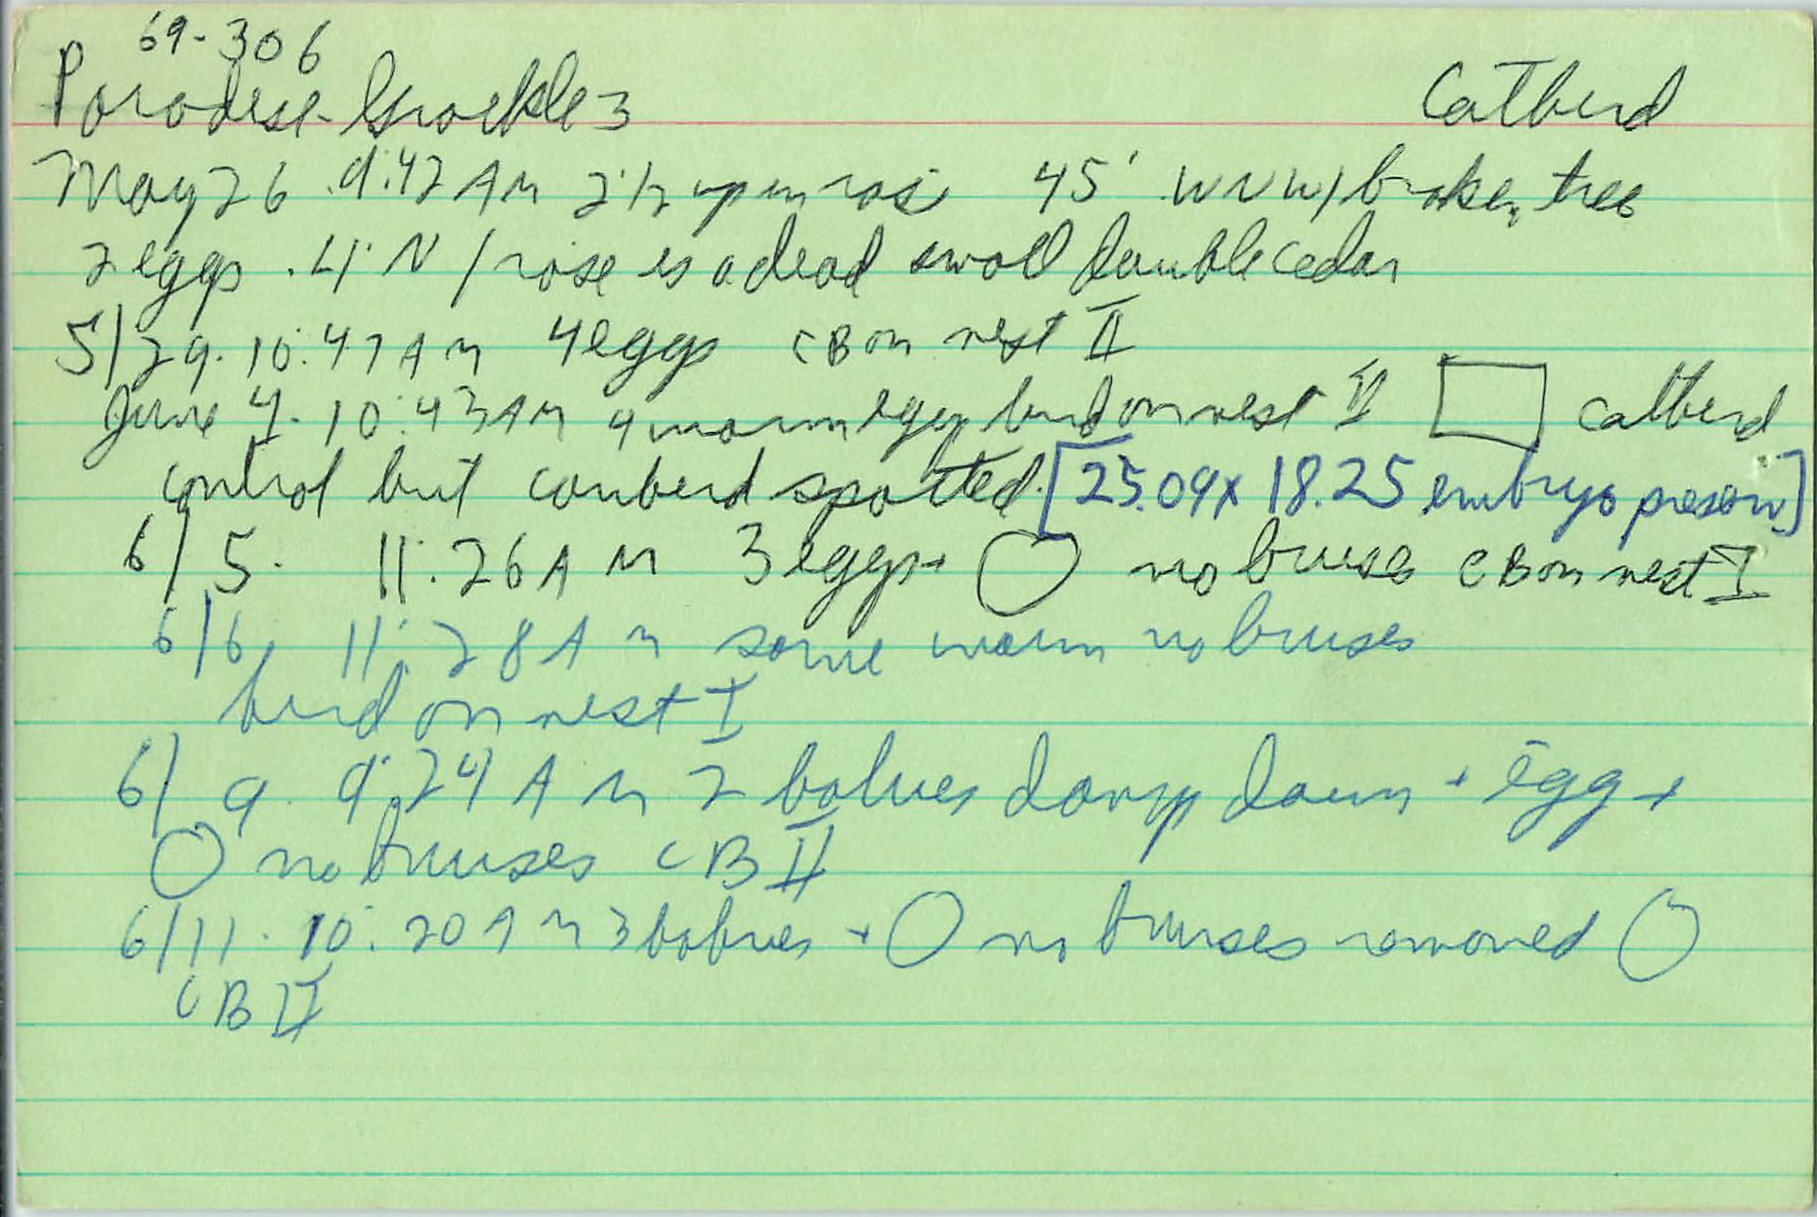 69-306
Paradise-Grackle 3 Catbird
May 26. 9:42 AM 2 1/2 up in rose 45' WNW / broken tree
2 eggs. 4' N / rose is a dead small double cedar
5/29. 10:47 AM 4 eggs CB on nest II
June 4. 10:43 AM 4 warm eggs bird on nest II catbird
control but cowbird spotted. [25.09 x 18.25 embryo present]
6/5. 11:26 AM 3 eggs + no bruises CB on nest I
6/6. 11:28 AM same warm no bruises
bird on nest I
6/9. 9:24 AM 2 babies damp down + egg +
no bruises CB II
6/11. 10:20 AM 3 babies + no bruises removed
CB II